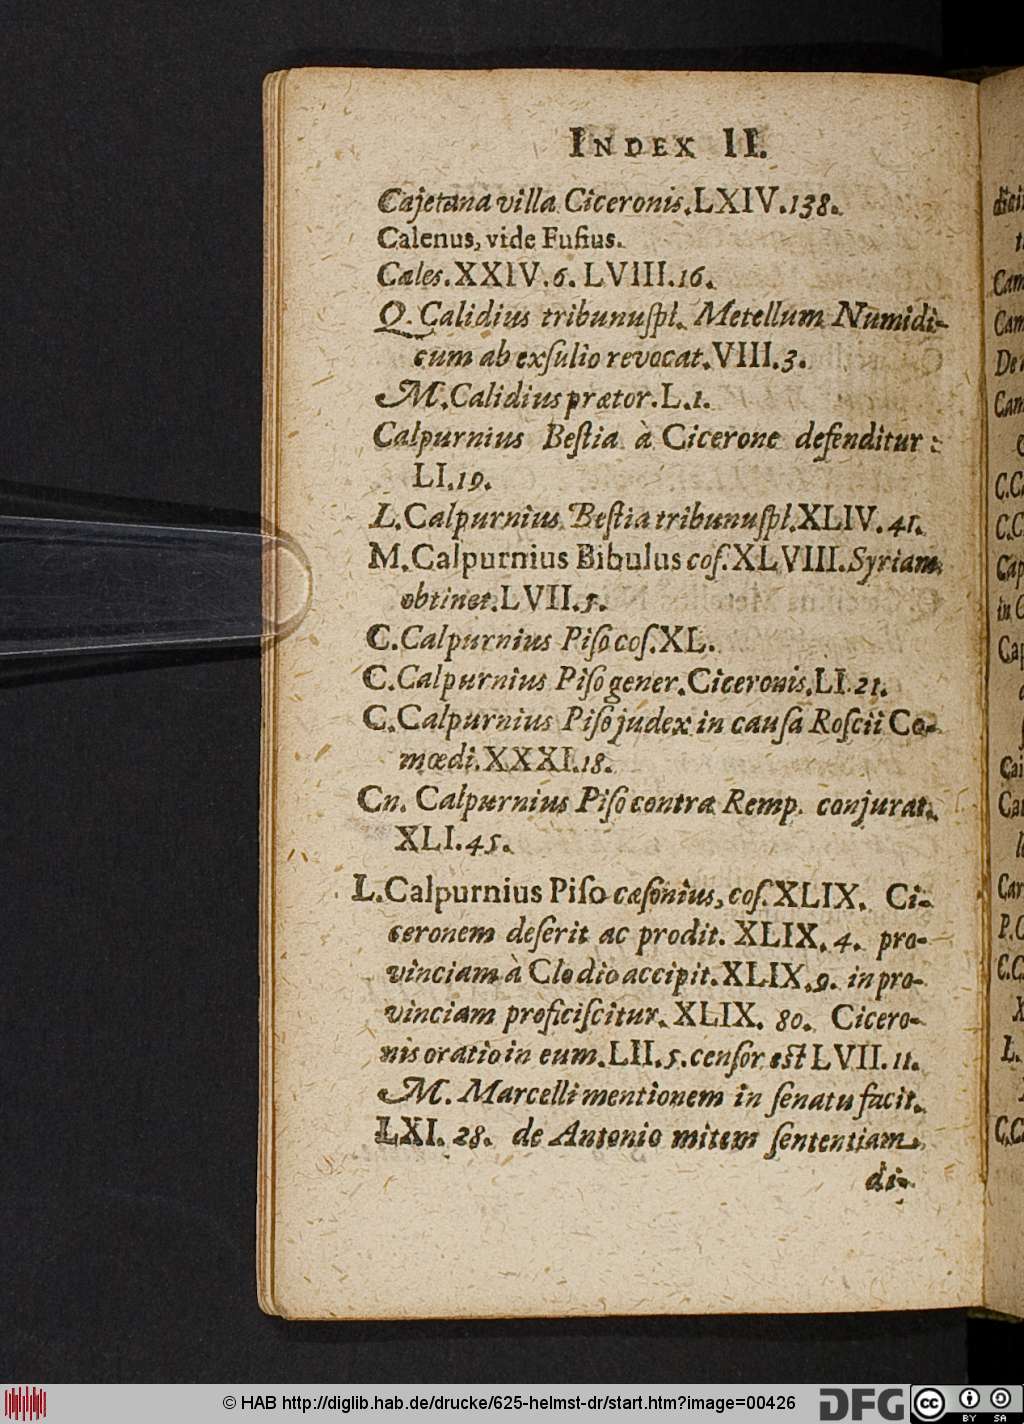 INDEX II.
Cajetana villa Ciceronis.LXIV.138.
Calenus, vide Fufius.
Cales.XXIV.6. LVIII.16.
Q. Calidius tribunuſpl. Metellum Numidi-
cum ab exſulio revocat.VIII.3.
M.Calidius prætor.L.1.
Calpurnius Beſtia à Cicerone defenditur:
LI.19.
L.Calpurnius Beſtia tribunuſpl.XLIV.41.
M.Calpurnius Bibulus coſ.XLVIII.Syriam
obtinet.LVII.5.
C.Calpurnius Piſo coſ.XL.
C.Calpurnius Piſo gener.Ciceronis.LI.21.
C.Calpurnius Piſo judex in cauſa Roſcii Co-
mœdi.XXXI.18.
Cn. Calpurnius Piſo contra Remp. conjurat.
XLI.45.
L.Calpurnius Piſo cæſonius, coſ.XLIX. Ci-
ceronem deſerit ac prodit. XLIX.4. pro-
vinciam à Clodio accipit.XLIX.9. in pro-
vinciam proficiſcitur.XLIX. 80. Cicero-
nis oratio in eum.LII.5.cenſor eſt LVII.11.
M. Marcelli mentionem in ſenatu facit.
LXI. 28. de Antonio mitem ſententiam
di-
© HAB http://diglib.hab.de/drucke/625-helmst-dr/start.htm?image=00426
DFG
cc
BY SA